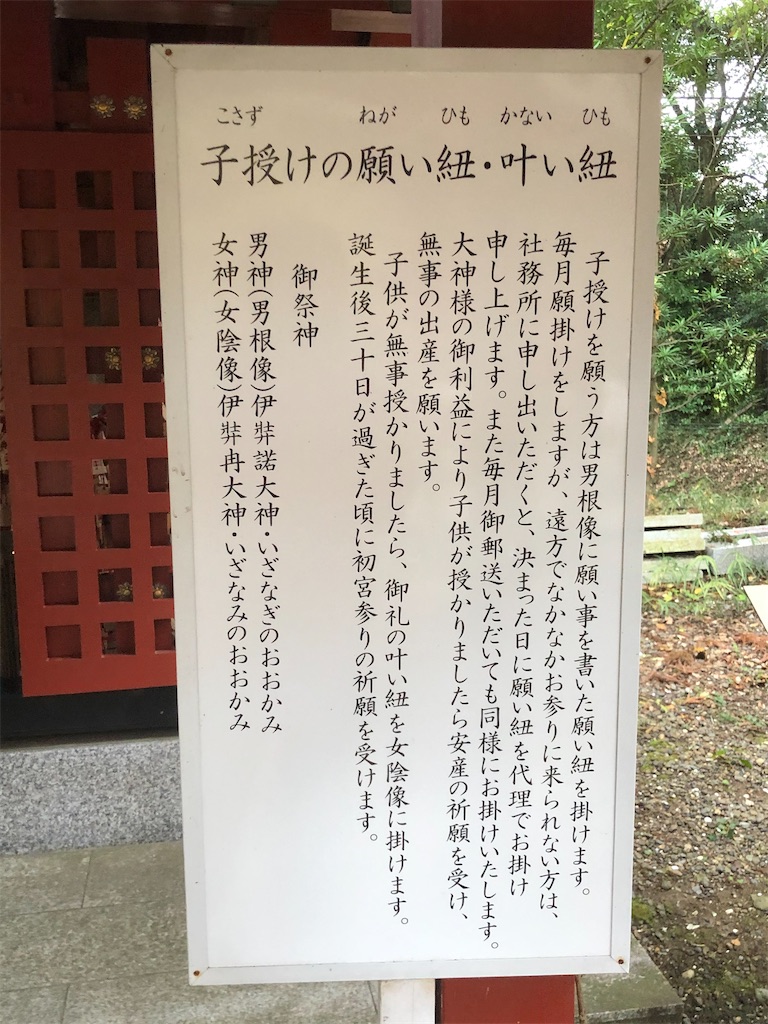 こさず ねが ひも かない ひも
子授けの願い紐・叶い紐
子授けを願う方は男根像に願い事を書いた願い紐を掛けます。
毎月願掛けをしますが、遠方でなかなかお参りに来られない方は、
社務所に申し出いただくと、決まった日に願い紐を代理でお掛け
申し上げます。また毎月御郵送いただいても同様にお掛けいたします。
大神様の御利益により子供が授かりましたら安産の祈願を受け、
無事の出産を願います。
子供が無事授かりましたら、御礼の叶い紐を女陰像に掛けます。
誕生後三十日が過ぎた頃に初宮参りの祈願を受けます。
御祭神
男神(男根像)伊弉諾大神・いざなぎのおおかみ
女神(女陰像)伊弉冉大神・いざなみのおおかみ